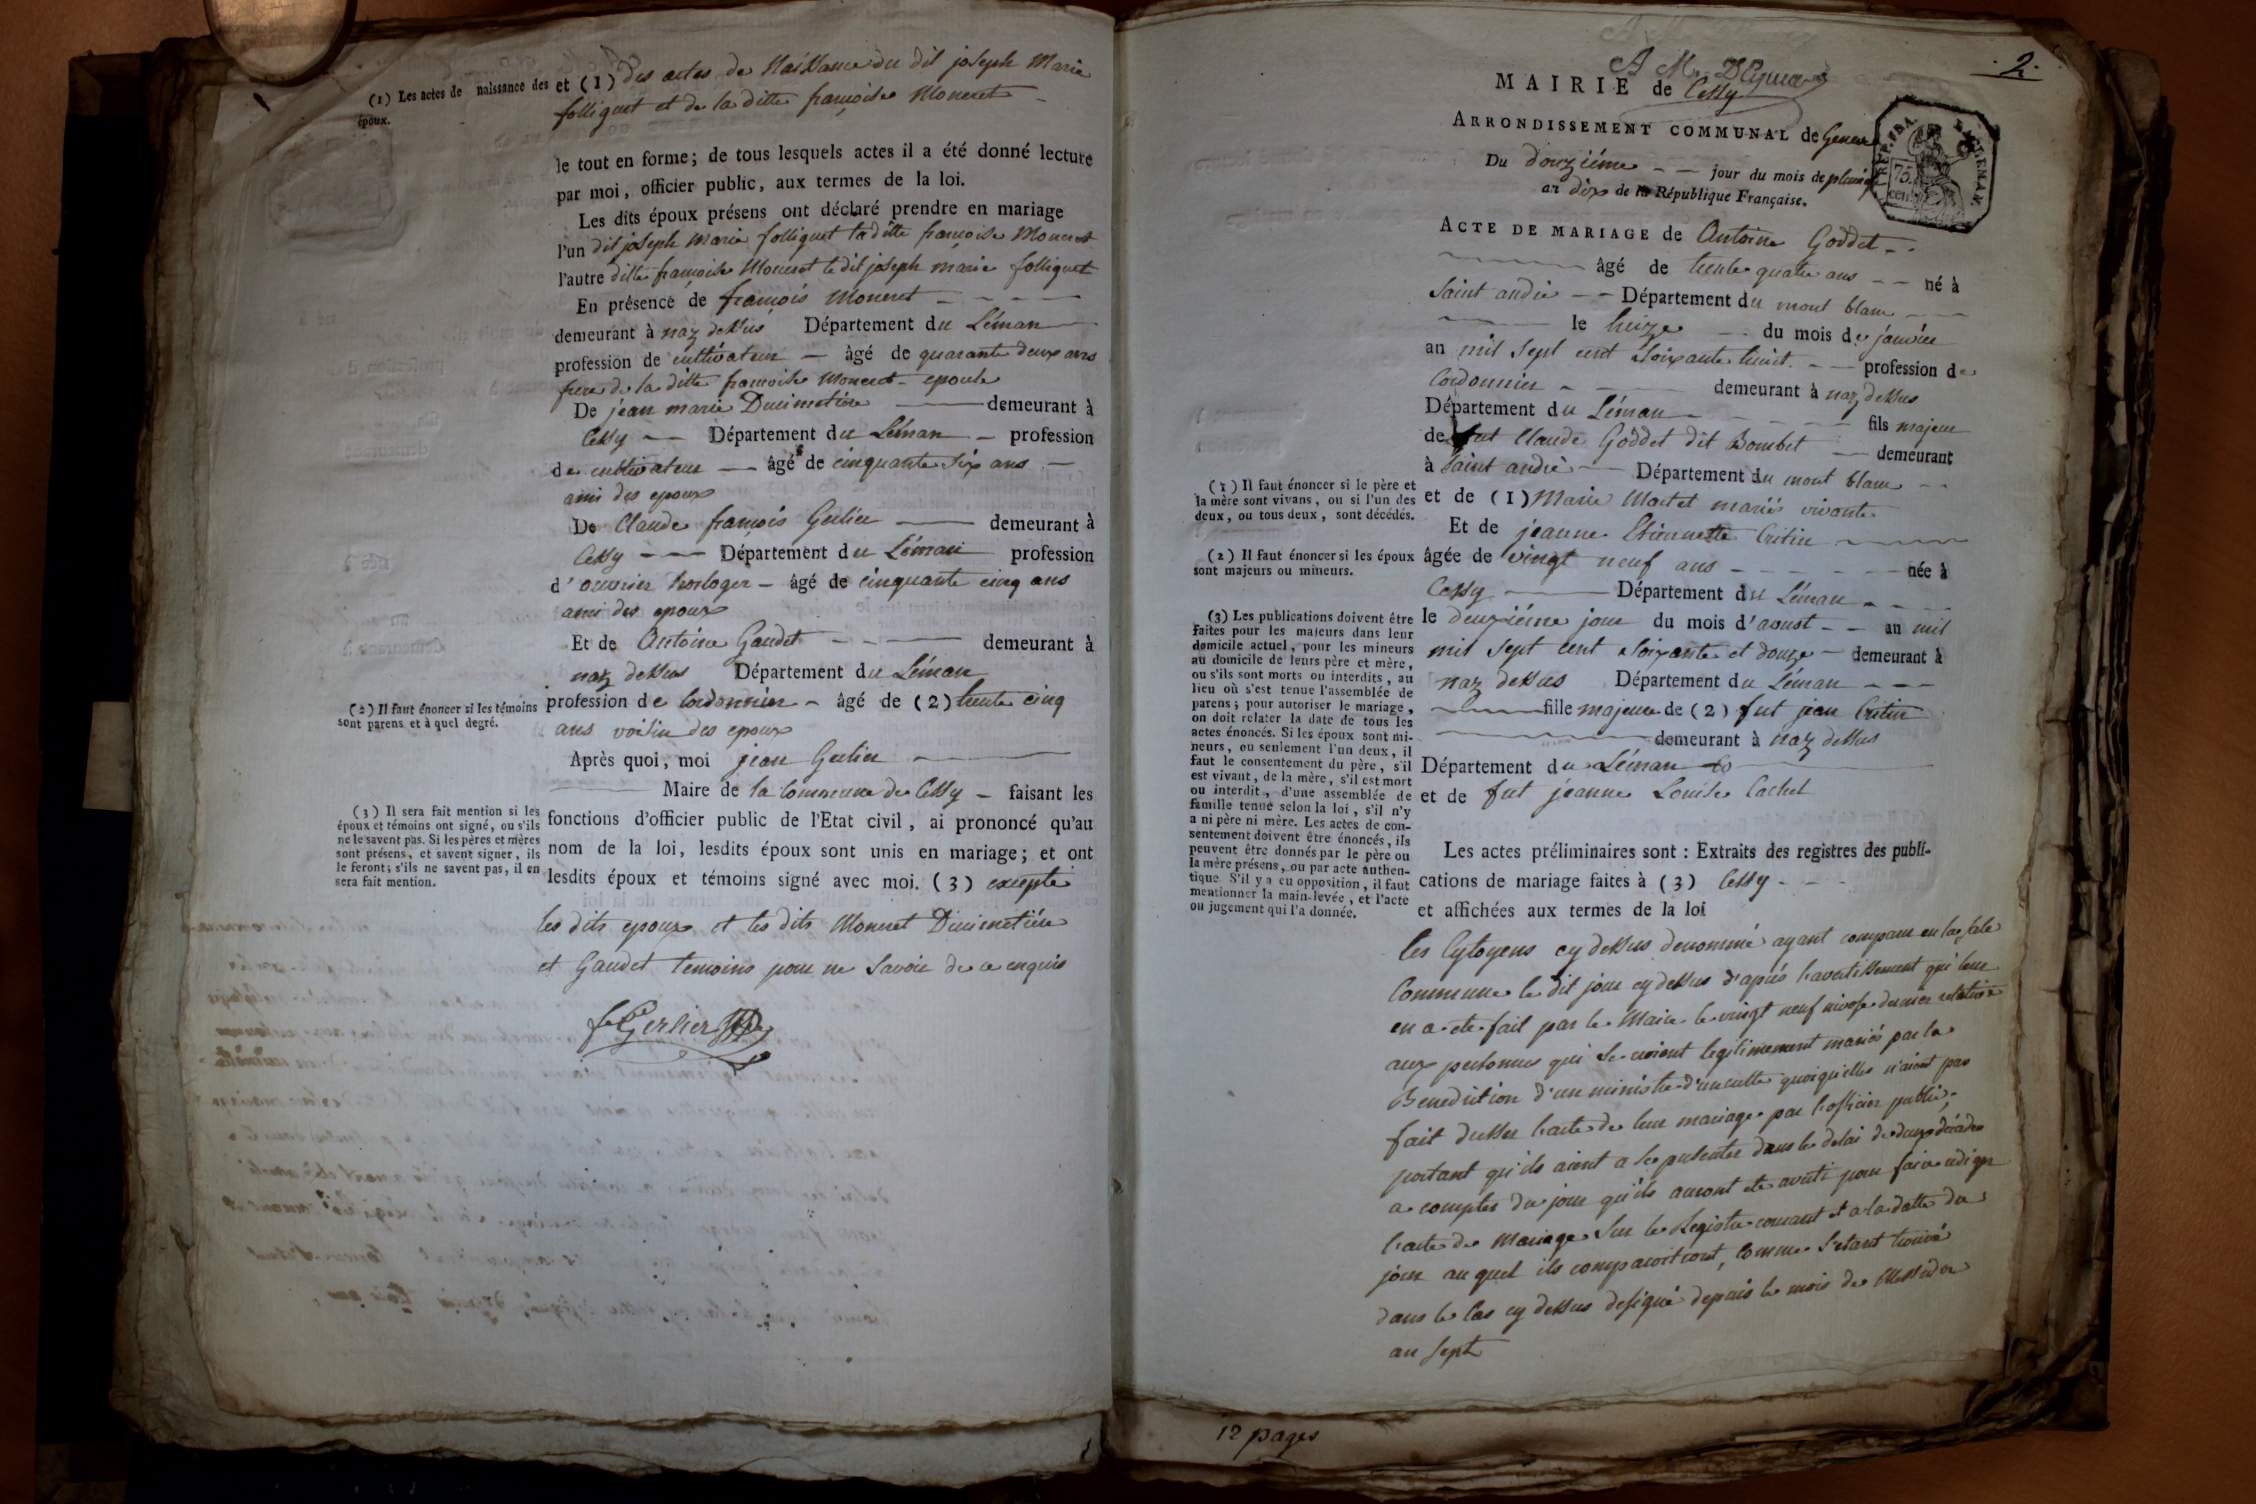 (1) Les actes de naissance des
époux.
et (1) des actes de Naissance du dit joseph Marie
folliguet et de la ditte françoise Moneret
le tout en forme; de tous lesquels actes il a été donné lecture
par moi, officier public, aux termes de la loi.
Les dits époux présens ont déclaré prendre en mariage
l'un dit joseph marie folliguet la ditte françoise Moneret
l'autre ditte françoise Moneret le dit joseph marie folliguet
En présence de françois Moneret
demeurant à naz dessus Département du Léman
profession de cultivateur — âgé de quarante deux ans
frere de la ditte francoise Moneret epouse
De jean marie Ducimetiere — demeurant à
Cessy — Département du Léman — profession
de cultivateur — âgé de cinquante six ans —
ami des epoux
De Claude françois Gerlier — demeurant à
Cessy — Département du Léman profession
d'ouvrier horloger — âgé de cinquante cinq ans
ami des epoux
Et de Antoine Gaudet — demeurant à
naz dessus Département du Léman
(2) Il faut énoncer si les témoins
sont parens et à quel degré.
profession de Cordonnier — âgé de (2) trente cinq
ans voisin des epoux
Après quoi, moi jean Gerlier —
Maire de la Commune de Cessy — faisant les
(3) Il sera fait mention si les
époux et témoins ont signé, ou s'ils
ne le savent pas. Si les pères et mères
sont présens, et savent signer, ils
le feront; s'ils ne savent pas, il en
sera fait mention.
fonctions d'officier public de l'Etat civil, ai prononcé qu'au
nom de la loi, lesdits époux sont unis en mariage; et ont
lesdits époux et témoins signé avec moi. (3) excepté
les dits epoux et les dits Moneret Ducimetiére
et Gaudet temoins pour ne savoir de ce enquis
Gerlier
2.
A Mr.
MAIRIE de Cessy
ARRONDISSEMENT COMMUNAL de Geneve
Du douziéme — — jour du mois de pluviose
an dix de la République Française.
RÉP. FRA.
LÉMAN.
75
cen.
ACTE DE MARIAGE de Antoine Goddet
âgé de trente quatre ans — — né à
Saint andré — Département du mont blanc —
le treize — du mois de janvier
an mil sept cent soixante huit — profession de
Cordonnier — demeurant à naz dessus
Département du Léman — fils majeur
de fut Claude Goddet dit Bombet — demeurant
à Saint andré — Département du mont blanc
(1) Il faut énoncer si le père et
la mère sont vivans, ou si l'un des
deux, ou tous deux, sont décédés.
et de (1) Marie Mortet mariés vivante
Et de jeanne Etiennette Critin
(2) Il faut énoncer si les époux
sont majeurs ou mineurs.
âgée de vingt neuf ans — née à
Cessy — Département du Léman
le deuxiéme jour du mois d'aoust — an mil
mil sept cent soixante et douze — demeurant à
naz dessus Département du Léman
fille majeure de (2) fut jean Critin
demeurant à naz dessus
Département du Léman
et de fut jeanne Louise Cachet
(3) Les publications doivent être
faites pour les majeurs dans leur
domicile actuel, pour les mineurs
au domicile de leurs père et mère,
ou s'ils sont morts ou interdits, au
lieu où s'est tenue l'assemblée de
parens; pour autoriser le mariage,
on doit relater la date de tous les
actes énoncés. Si les époux sont mi-
neurs, ou seulement l'un deux, il
faut le consentement du père, s'il
est vivant, de la mère, s'il est mort
ou interdit, d'une assemblée de
famille tenue selon la loi, s'il n'y
a ni père ni mère. Les actes de con-
sentement doivent être énoncés, ils
peuvent être donnés par le père ou
la mère présens, ou par acte authen-
tique. S'il y a eu opposition, il faut
mentionner la main-levée, et l'acte
ou jugement qui l'a donnée.
Les actes préliminaires sont : Extraits des registres des publi-
cations de mariage faites à (3) Cessy
et affichées aux termes de la loi
les Cytoyens cy dessus denommé ayant comparu en la sale
Commune le dit jour cy dessus d'après l'avertissement qui leur
en a été fait par le Maire le vingt neuf nivose dernier relative
aux personnes qui se croient legitimement mariés par la
Benediction d'un ministre d'un culte quoiqu'elles n'aient pas
fait dresser l'acte de leur mariage par l'officier public,
portant qu'ils aient a se presenter dans le delai de deux décades
a compter du jour qu'ils auront été averti pour faire rediger
l'acte de Mariage sur le Registre courant et a la datte du
jour au quel ils comparoitront, comme s'etant trouvé
dans le cas cy dessus designé depuis le mois de Messidor
an sept
12 pages